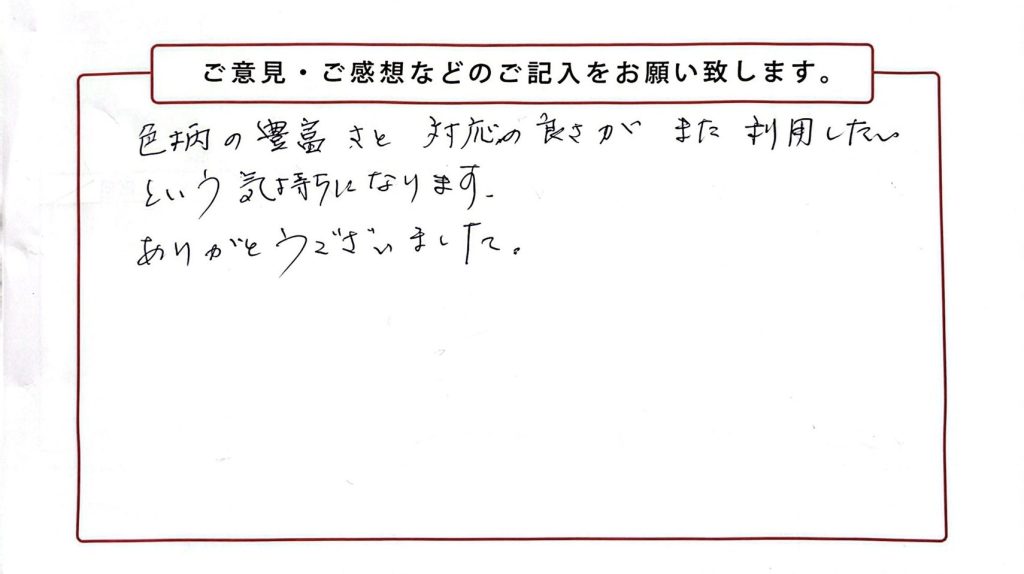 ご意見・ご感想などのご記入をお願い致します。
色柄の豊富さと 対応の良さが また 利用したい
という気持ちになります。
ありがとうございました。